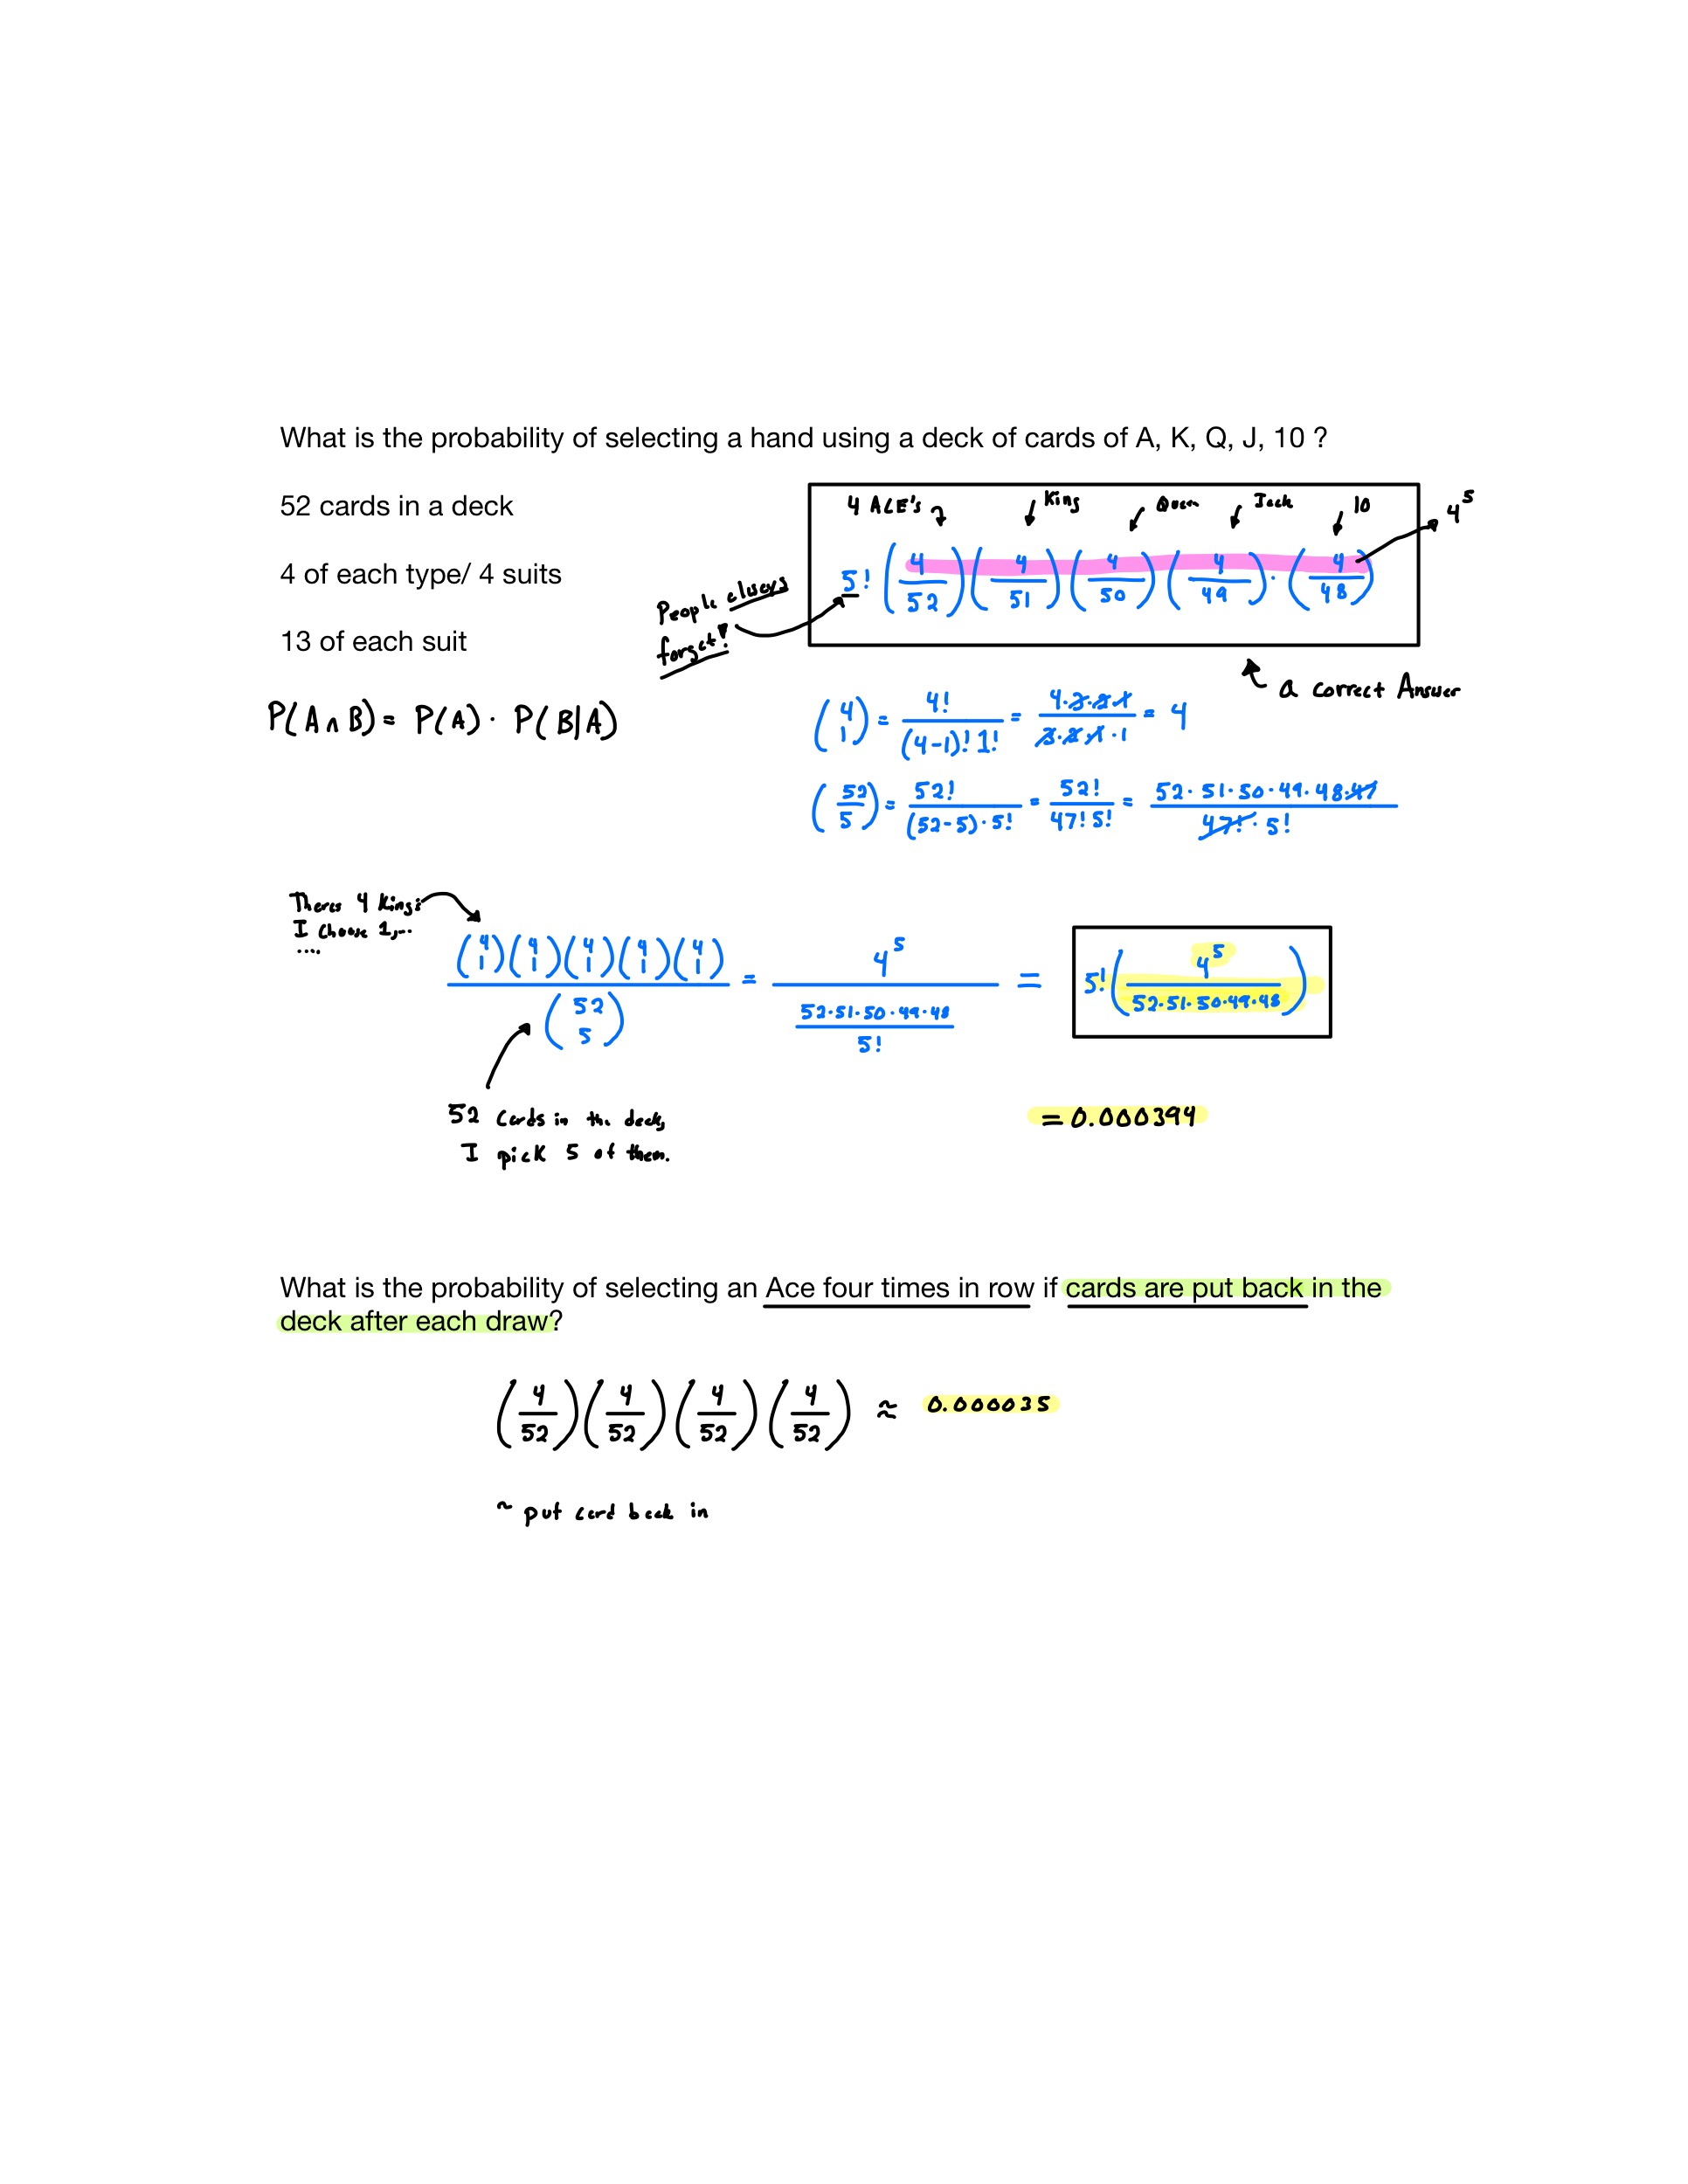 What is the probability of selecting a hand using a deck of cards of A, K, Q, J, 10 ?
52 cards in a deck
4 of each type/ 4 suits
13 of each suit
P(A ∩ B) = P(A) · P(B|A)
4 ACE's King Queen Jack 10
5! (4/52)(4/51)(4/50)(4/49)·(4/48)
4^5
People always
forget!
a correct Answer
(4 1) = 4!/((4-1)! 1!) = (4·3·2·1)/(3·2·1·1) = 4
(52/5) = 52!/((52-5)·5!) = 52!/(47! 5!) = (52·51·50·49·48·47)/(47!·5!)
Theres 4 Kings
I choose 1,...
....
(4 1)(4 1)(4 1)(4 1)(4 1)/(52 5) = 4^5/((52·51·50·49·48)/5!) = 5!(4^5/(52·51·50·49·48))
52 cards in the deck,
I pick 5 of them.
= 0.000394
What is the probability of selecting an Ace four times in row if cards are put back in the
deck after each draw?
(4/52)(4/52)(4/52)(4/52) ≈ 0.000035
~ put card back in